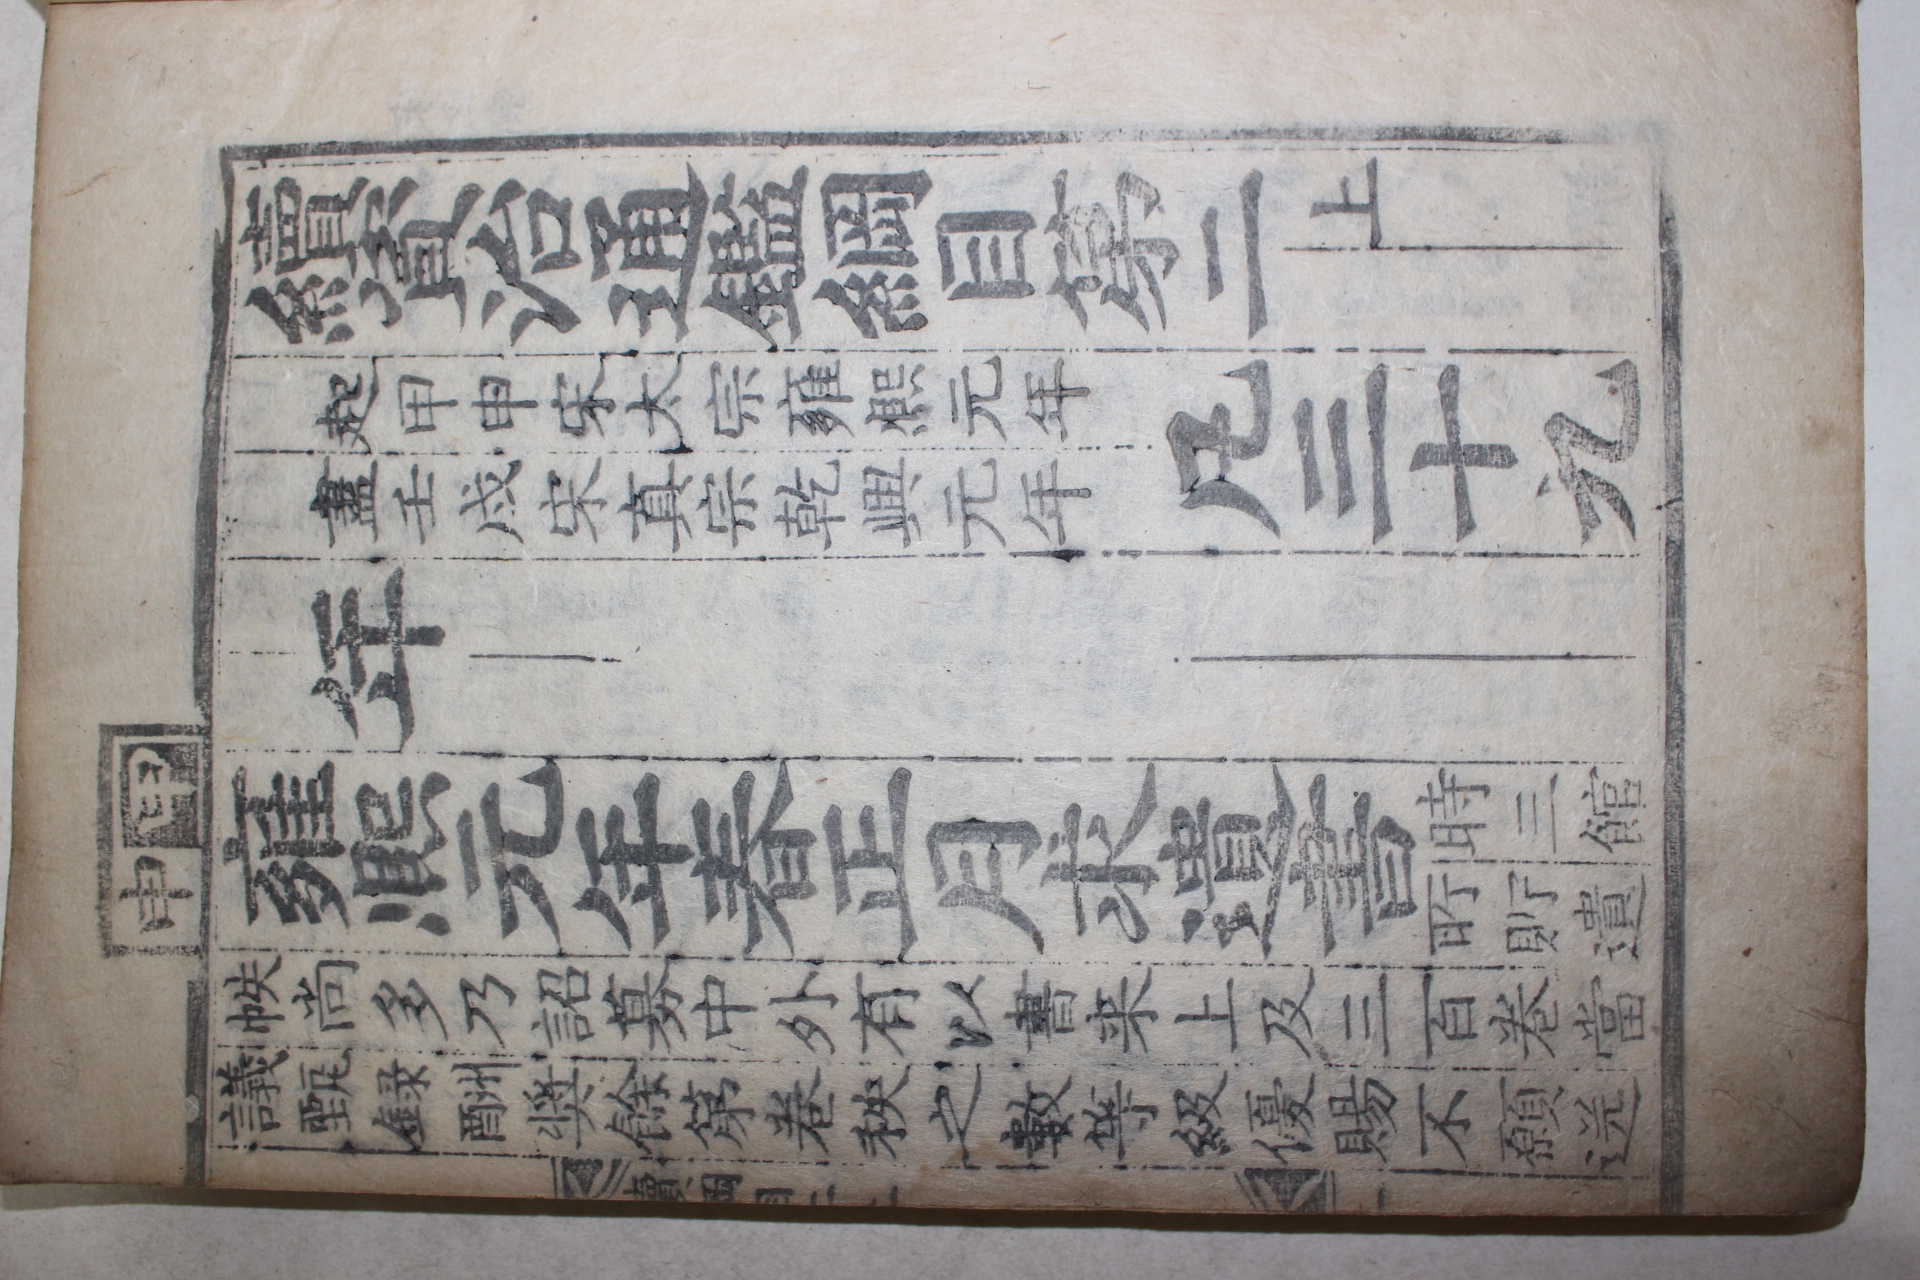 續資治通鑑綱目第二上
起甲申宋太宗雍熙元年
盡壬戌宋真宗乾興元年
凡三十九
年
申
雍熙元年春正月求遺書
時三館
所貯遺
帙尚多乃詔募中外有以書來上及三百卷當
議甄錄酬獎餘第卷秩之數等級優賜不願送